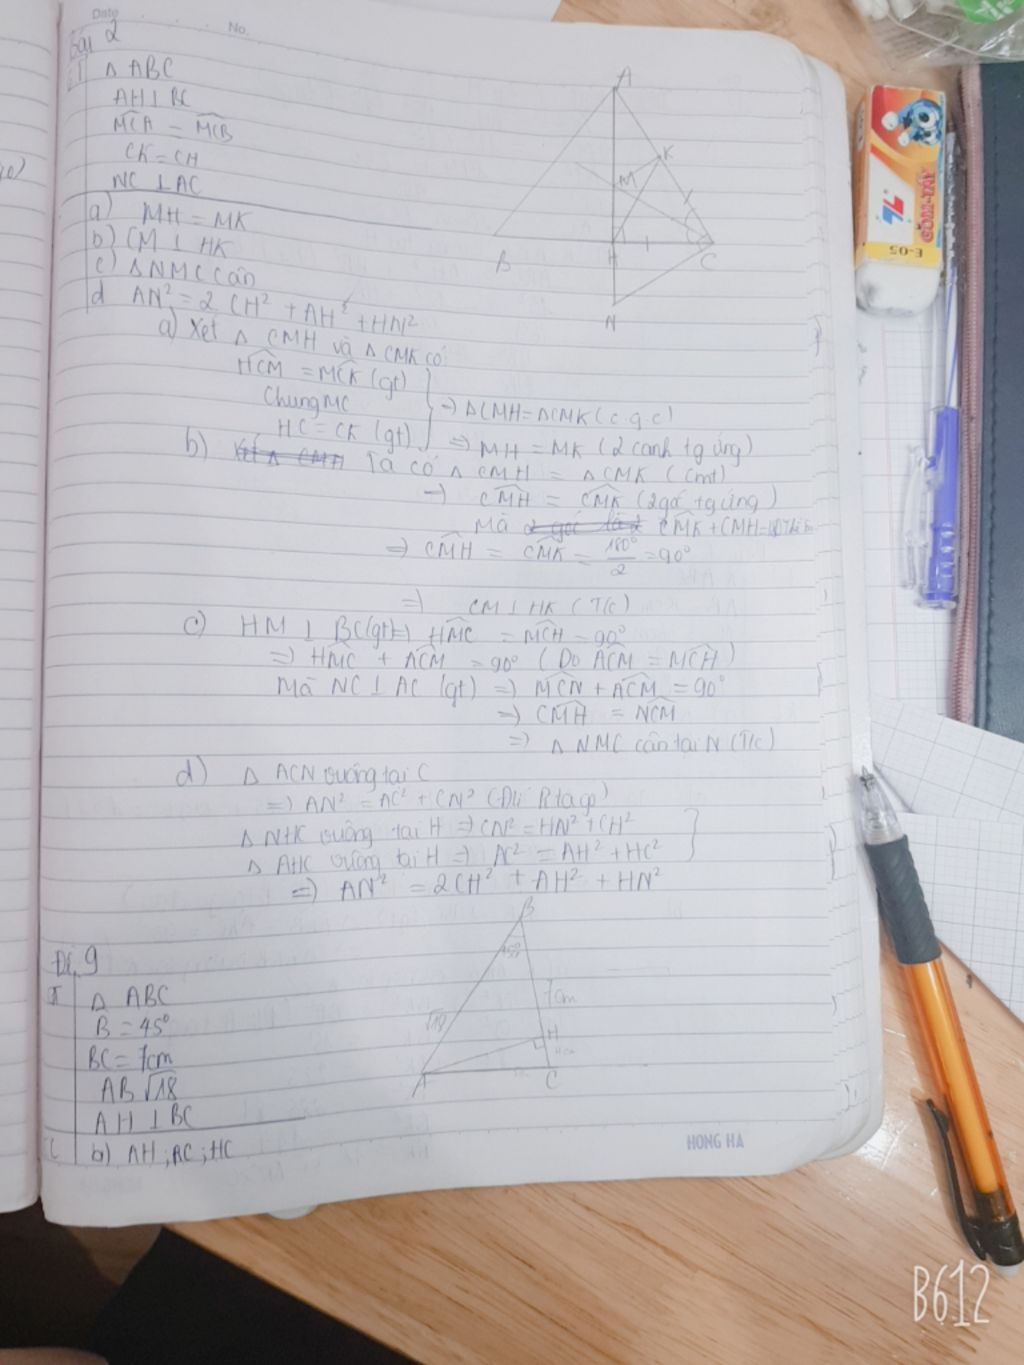 Date
No.
Bài 2
GT
Δ ABC
AH ⊥ BC
MCA = MCB
CK = CH
NC ⊥ AC
a) MH = MK
b) CM ⊥ HK
c) Δ NMC cân
d AN² = 2 CH² + AH² + HN²
A
K
M
B
H
C
N
a) Xét Δ CMH và Δ CMK có
HCM = MCK (gt)
Chung MC
HC = CK (gt)
⇒ Δ CMH = Δ CMK (c.g.c)
⇒ MH = MK (2 cạnh tg ứng)
b) Ta có Δ CMH = Δ CMK (cmt)
⇒ CMH = CMK (2 góc tg ứng)
Mà CMK + CMH = 180°
⇒ CMH = CMK = 180°/2 = 90°
⇒ CM ⊥ HK (T/c)
c) HM ⊥ BC (gt) ⇒ HMC = MCH = 90°
⇒ HMC + ACM = 90° (Do ACM = MCH)
Mà NC ⊥ AC (gt) ⇒ MCN + ACM = 90°
⇒ CMH = NCM
⇒ Δ NMC cân tại N (T/c)
d) Δ ACN vuông tại C
⇒ AN² = AC² + CN² (Đlí Pitago)
Δ NHC vuông tại H ⇒ CN² = HN² + CH²
Δ AHC vuông tại H ⇒ AC² = AH² + HC²
⇒ AN² = 2CH² + AH² + HN²
Đề 9
B
45°
7cm
√18
H
A
C
Δ ABC
B = 45°
BC = 7cm
AB √18
AH ⊥ BC
b) AH ; AC ; HC
HONG HA
GÔM-TẨY
E-05
B612